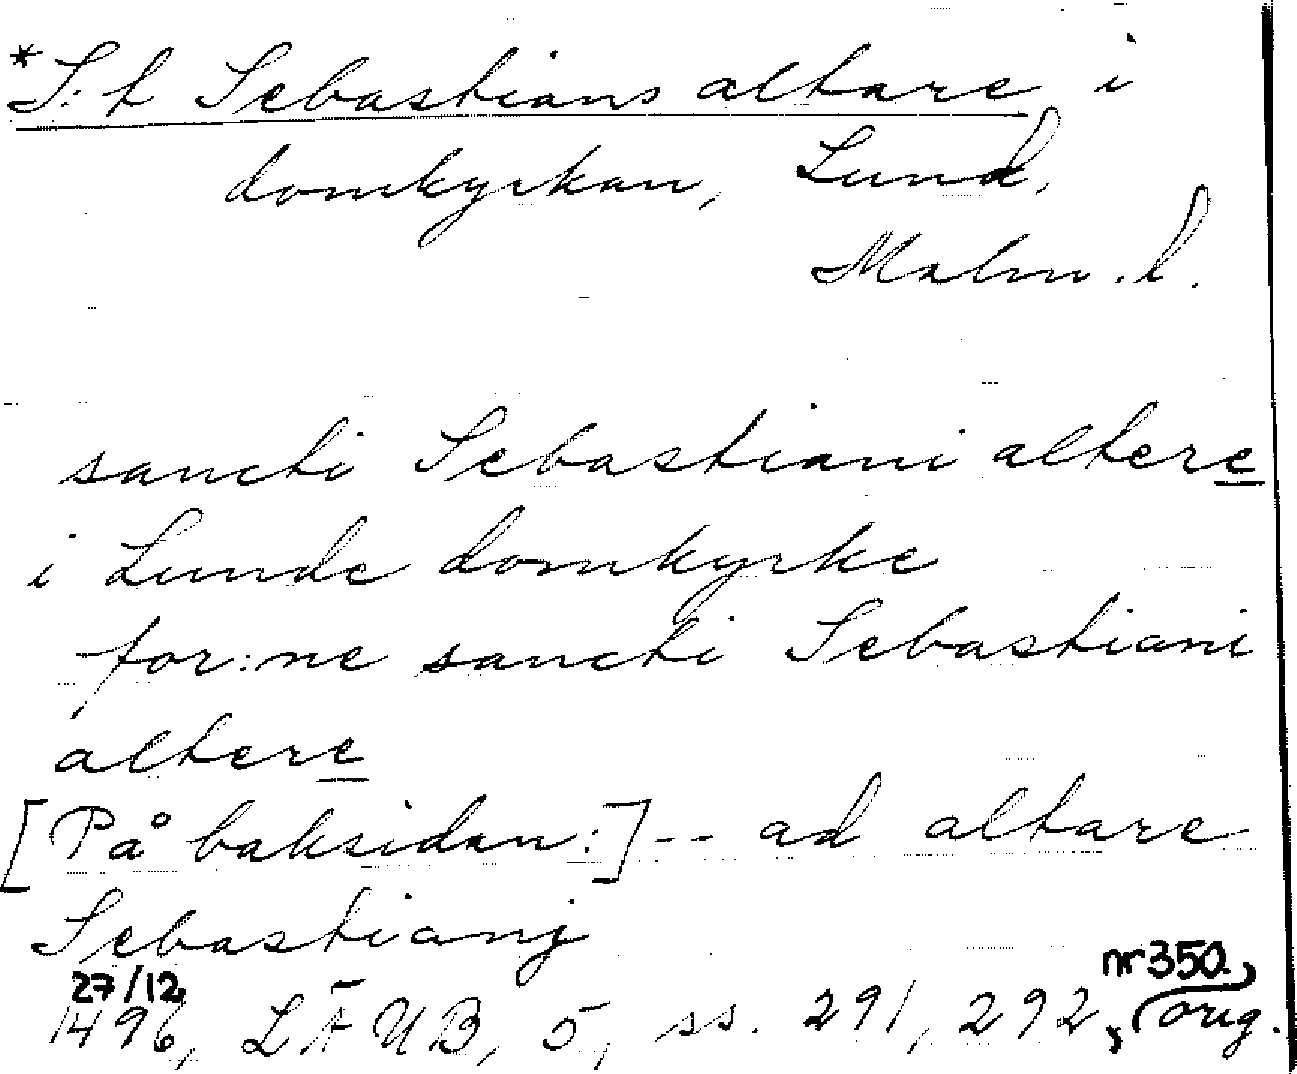 *S:t Sebastians altare i
domkyrkan, Lund,
Malm. l.
sancti Sebastiani altere
i Lunde domkyrke
for:ne sancti Sebastiani
altere
[På baksidan:] -- ad altare
Sebastianj
27/12 nr 350,
1496, LÄUB, 5, ss. 291, 292, orig.